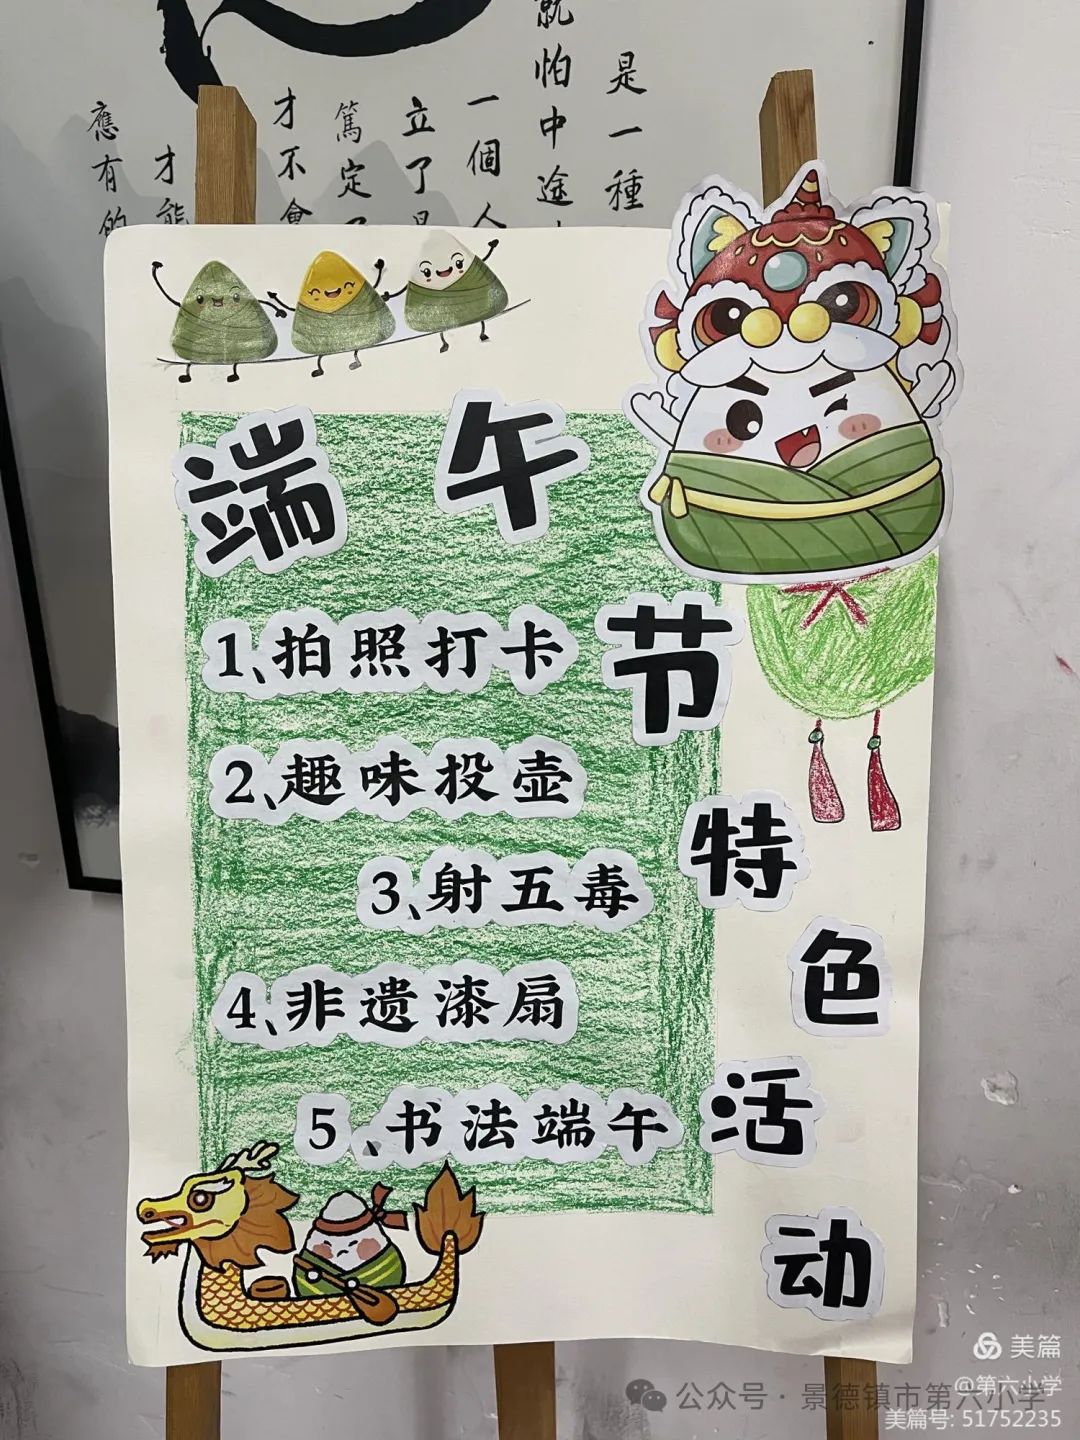 是一種
就怕中途
一個人
立了
篤定
才不會
才能
應有的
端午节特色活动
1、拍照打卡
2、趣味投壶
3、射五毒
4、非遗漆扇
5、书法端午
美篇
@第六小学
公众号·景德镇市第六小学
美篇号: 51752235